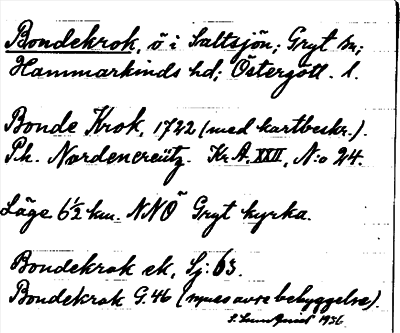 Bondekrok, ö i Saltsjön; Gryt sn;
Hammarkinds hd; Östergötl. l.
Bonde Krok, 1722 (med kartbeskr.).
Ph. Nordencreütz. Kr.A. XXII, N:o 24.
Läge 6½ km. NNÖ Gryt kyrka.
Bondekrok ek, Sj: 63.
Bondekrok G. 46 (mves avre bebyggelse).
1936